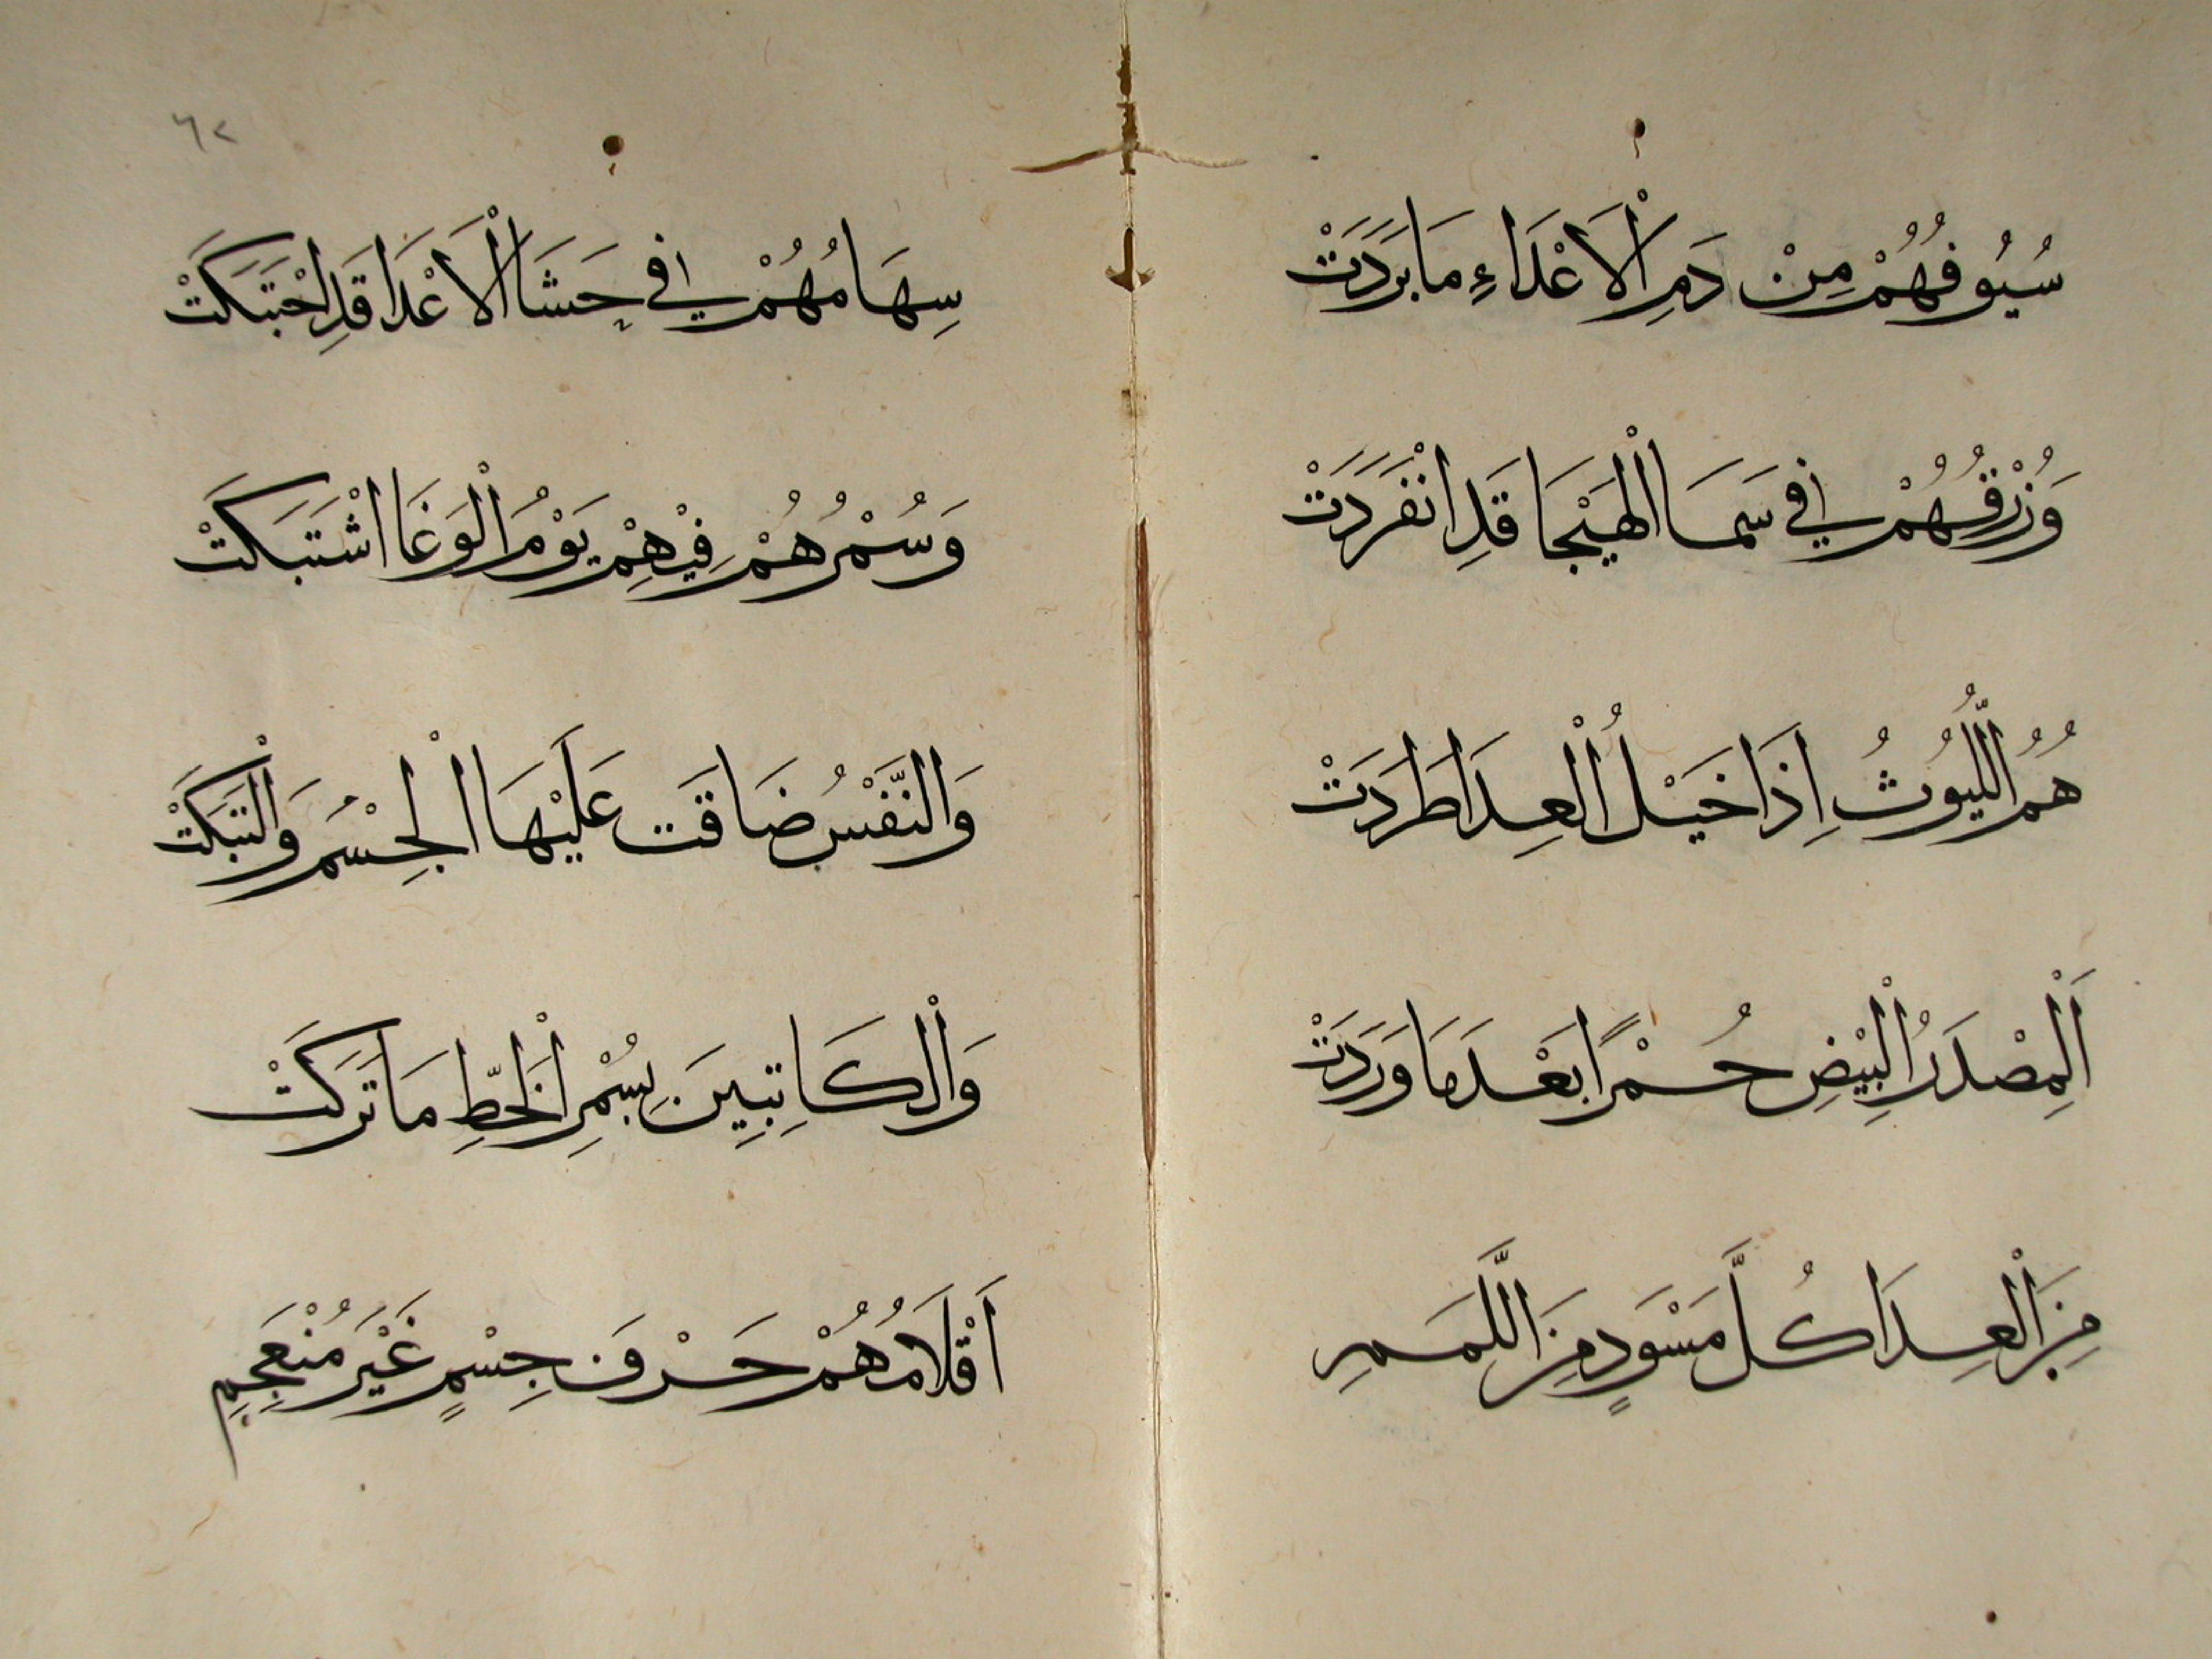 سُيُوفُهُمْ مِنْ دَمِ الْأَعْدَاءِ مَا بَرَدَتْ
وَزُرْقُهُمْ فِي سَمَا الْهَيْجَا قَدِ انْفَرَدَتْ
هُمُ اللُّيُوثُ اِذَا خَيْلُ الْعِدَا طَرَدَتْ
اَلْمِصْدَرُ الْبِيْضِ حُمْرًا بَعْدَ مَا وَرَدَتْ
مِنَ الْعِدَا كُلَّ مَسْوَدٍ مِنَ اللَّمَمِ
٦٢
سِهَامُهُمْ فِي حَشَا الْأَعْدَا قَدِ احْتَبَكَتْ
وَسُمْرُهُمْ فِيْهِمْ يَوْمَ الْوَغَا اشْتَبَكَتْ
وَالنَّفْسُ ضَاقَت عَلَيْهَا الْجِسْمُ وَالْتَبَكَتْ
وَالْكَاتِبِينَ بِسُمْرِ الْخَطِّ مَا تَرَكَتْ
اَقْلَامُهُمْ حَرْفَ جِسْمٍ غَيْرَ مُنْعَجِمِ